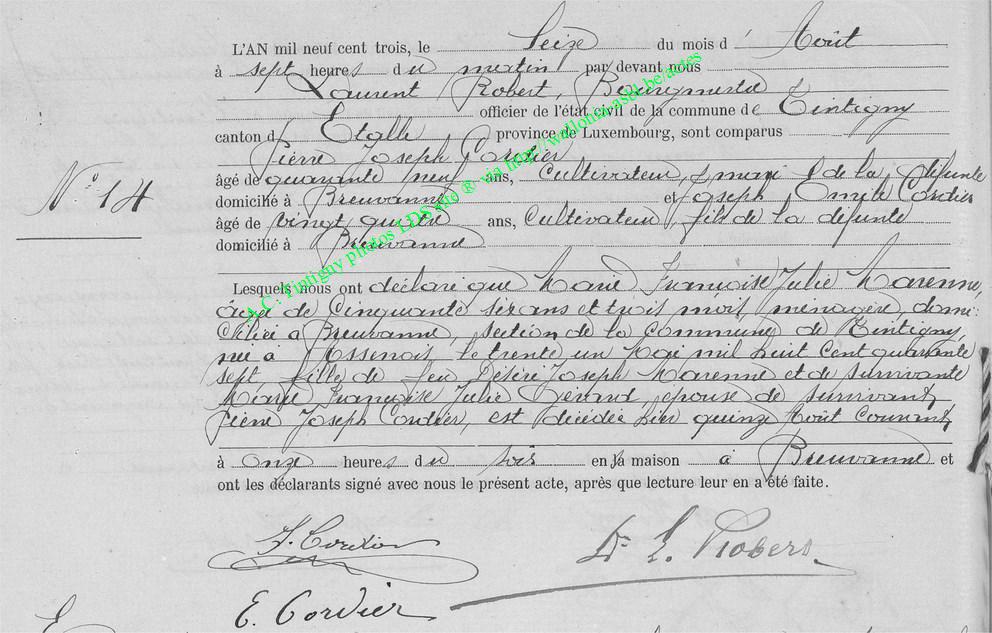 L'AN mil neuf cent trois, le Seize du mois d' Août
à sept heures du matin par devant nous
Laurent Robert, Bourgmestre
officier de l'état civil de la commune de Tintigny
canton d' Etalle province de Luxembourg, sont comparus
Pierre Joseph Cordier
âgé de quarante neuf ans, Cultivateur, mari de la défunte
domicilié à Breuvanne et Joseph Emile Cordier
N° 14
âgé de vingt quatre ans, Cultivateur, fils de la défunte
domicilié à Breuvanne
Lesquels nous ont déclaré que Marie Françoise Julie Marenne,
âgée de Cinquante six ans et trois mois, ménagère, domi-
ciliée à Breuvanne, section de la Commune de Tintigny,
née à Assenois, le trente un Mai mil huit Cent quarante
sept, fille de feu Désiré Joseph Marenne et de survivante
Marie Françoise Julie épouse de survivant,
Pierre Joseph Cordier, est décédée hier quinze Août Courant,
à onze heures du soir en sa maison à Breuvanne et
ont les déclarants signé avec nous le présent acte, après que lecture leur en a été faite.
J. Cordier
Dr L. Robert
E. Cordier
A.C : Tintigny photos LDS site ® via http://wallonia-asbl.be/actes